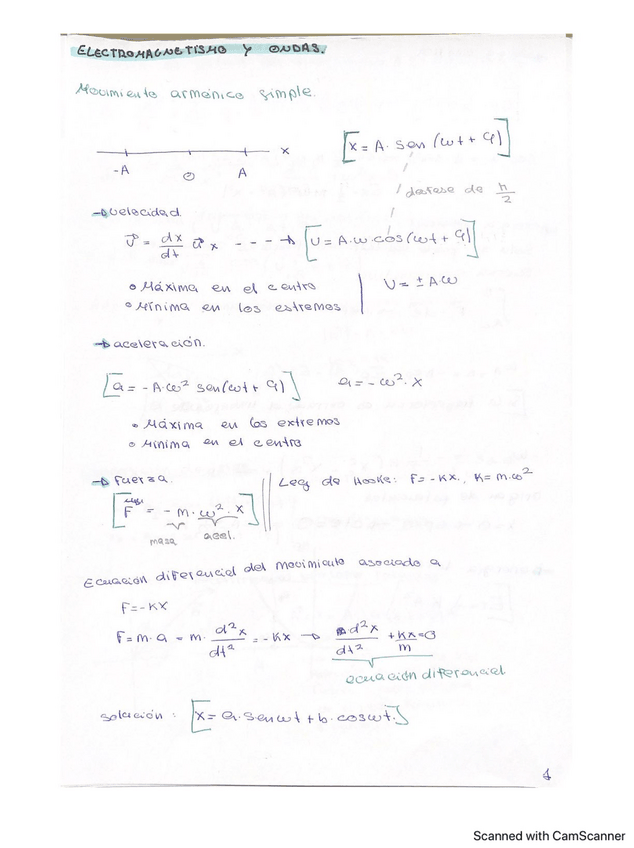 ELECTROMAGNETISMO Y ONDAS.
Movimiento armónico simple.
-A O A x
[x = A. sen (ωt + φ)]
desfase de π/2
→ velocidad
v⃗ = dx/dt u⃗x ---→ [v = A.ω.cos(ωt + φ)]
• Máxima en el centro
• Mínima en los estremos
v = ± Aω
→ aceleración.
[a = -A.ω² sen(ωt + φ)] a = -ω².x
• Máxima en los extremos
• Mínima en el centro
→ Fuerza.
[F = -m.ω².x]
masa acel.
Ley de Hooke: F=-Kx., K=m.ω²
Ecuación diferencial del movimiento asociado a
F=-Kx
F=m.a = m. d²x/dt² = -Kx → d²x/dt² + Kx/m = 0
ecuación diferencial
solución: [x = a.senωt + b.cosωt.]
1
Scanned with CamScanner